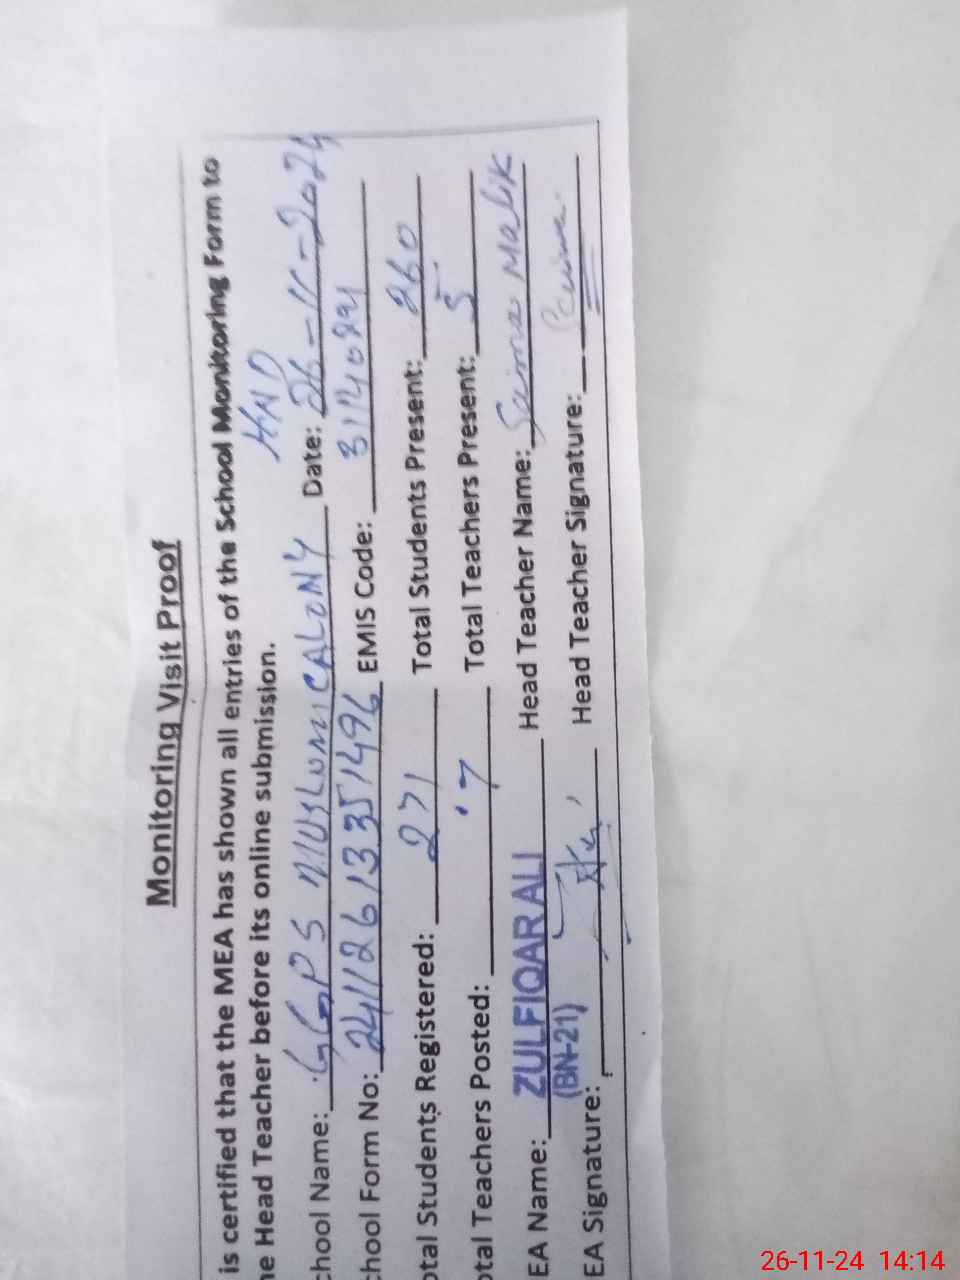 Monitoring Visit Proof
is certified that the MEA has shown all entries of the School Monitoring Form to
he Head Teacher before its online submission.
HND
chool Name: GGPS MUSLUMICALONY Date: 26-11-2024
chool Form No: 24112613351496 EMIS Code:
otal Students Registered: 271 Total Students Present: 260
otal Teachers Posted: 7 Total Teachers Present: 5
EA Name: ZULFIQAR ALI Head Teacher Name: Saima Malik
(BN-21)
EA Signature: Head Teacher Signature: Saima
26-11-24 14:14